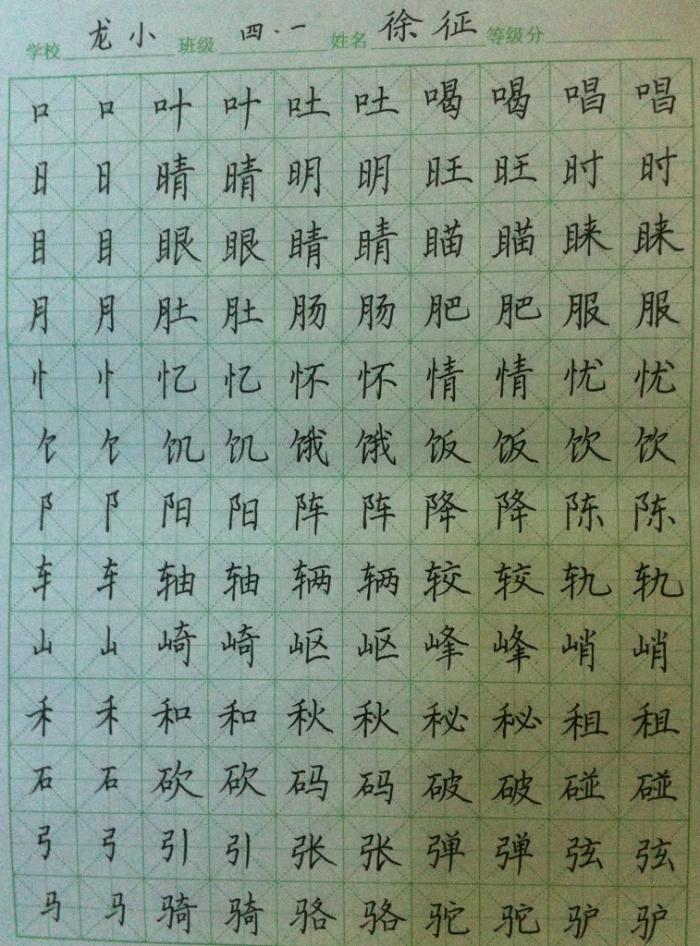 学校 龙小 班级 四.一 姓名 徐征 等级分
口 口 叶 叶 吐 吐 喝 喝 唱 唱
日 日 晴 晴 明 明 旺 旺 时 时
目 目 眼 眼 睛 睛 瞄 瞄 睐 睐
月 月 肚 肚 肠 肠 肥 肥 服 服
忄 忄 忆 忆 怀 怀 情 情 忧 忧
饣 饣 饥 饥 饿 饿 饭 饭 饮 饮
阝 阝 阳 阳 阵 阵 降 降 陈 陈
车 车 轴 轴 辆 辆 较 较 轨 轨
山 山 崎 崎 岖 岖 峰 峰 峭 峭
禾 禾 和 和 秋 秋 秘 秘 租 租
石 石 砍 砍 码 码 破 破 碰 碰
弓 弓 引 引 张 张 弹 弹 弦 弦
马 马 骑 骑 骆 骆 驼 驼 驴 驴